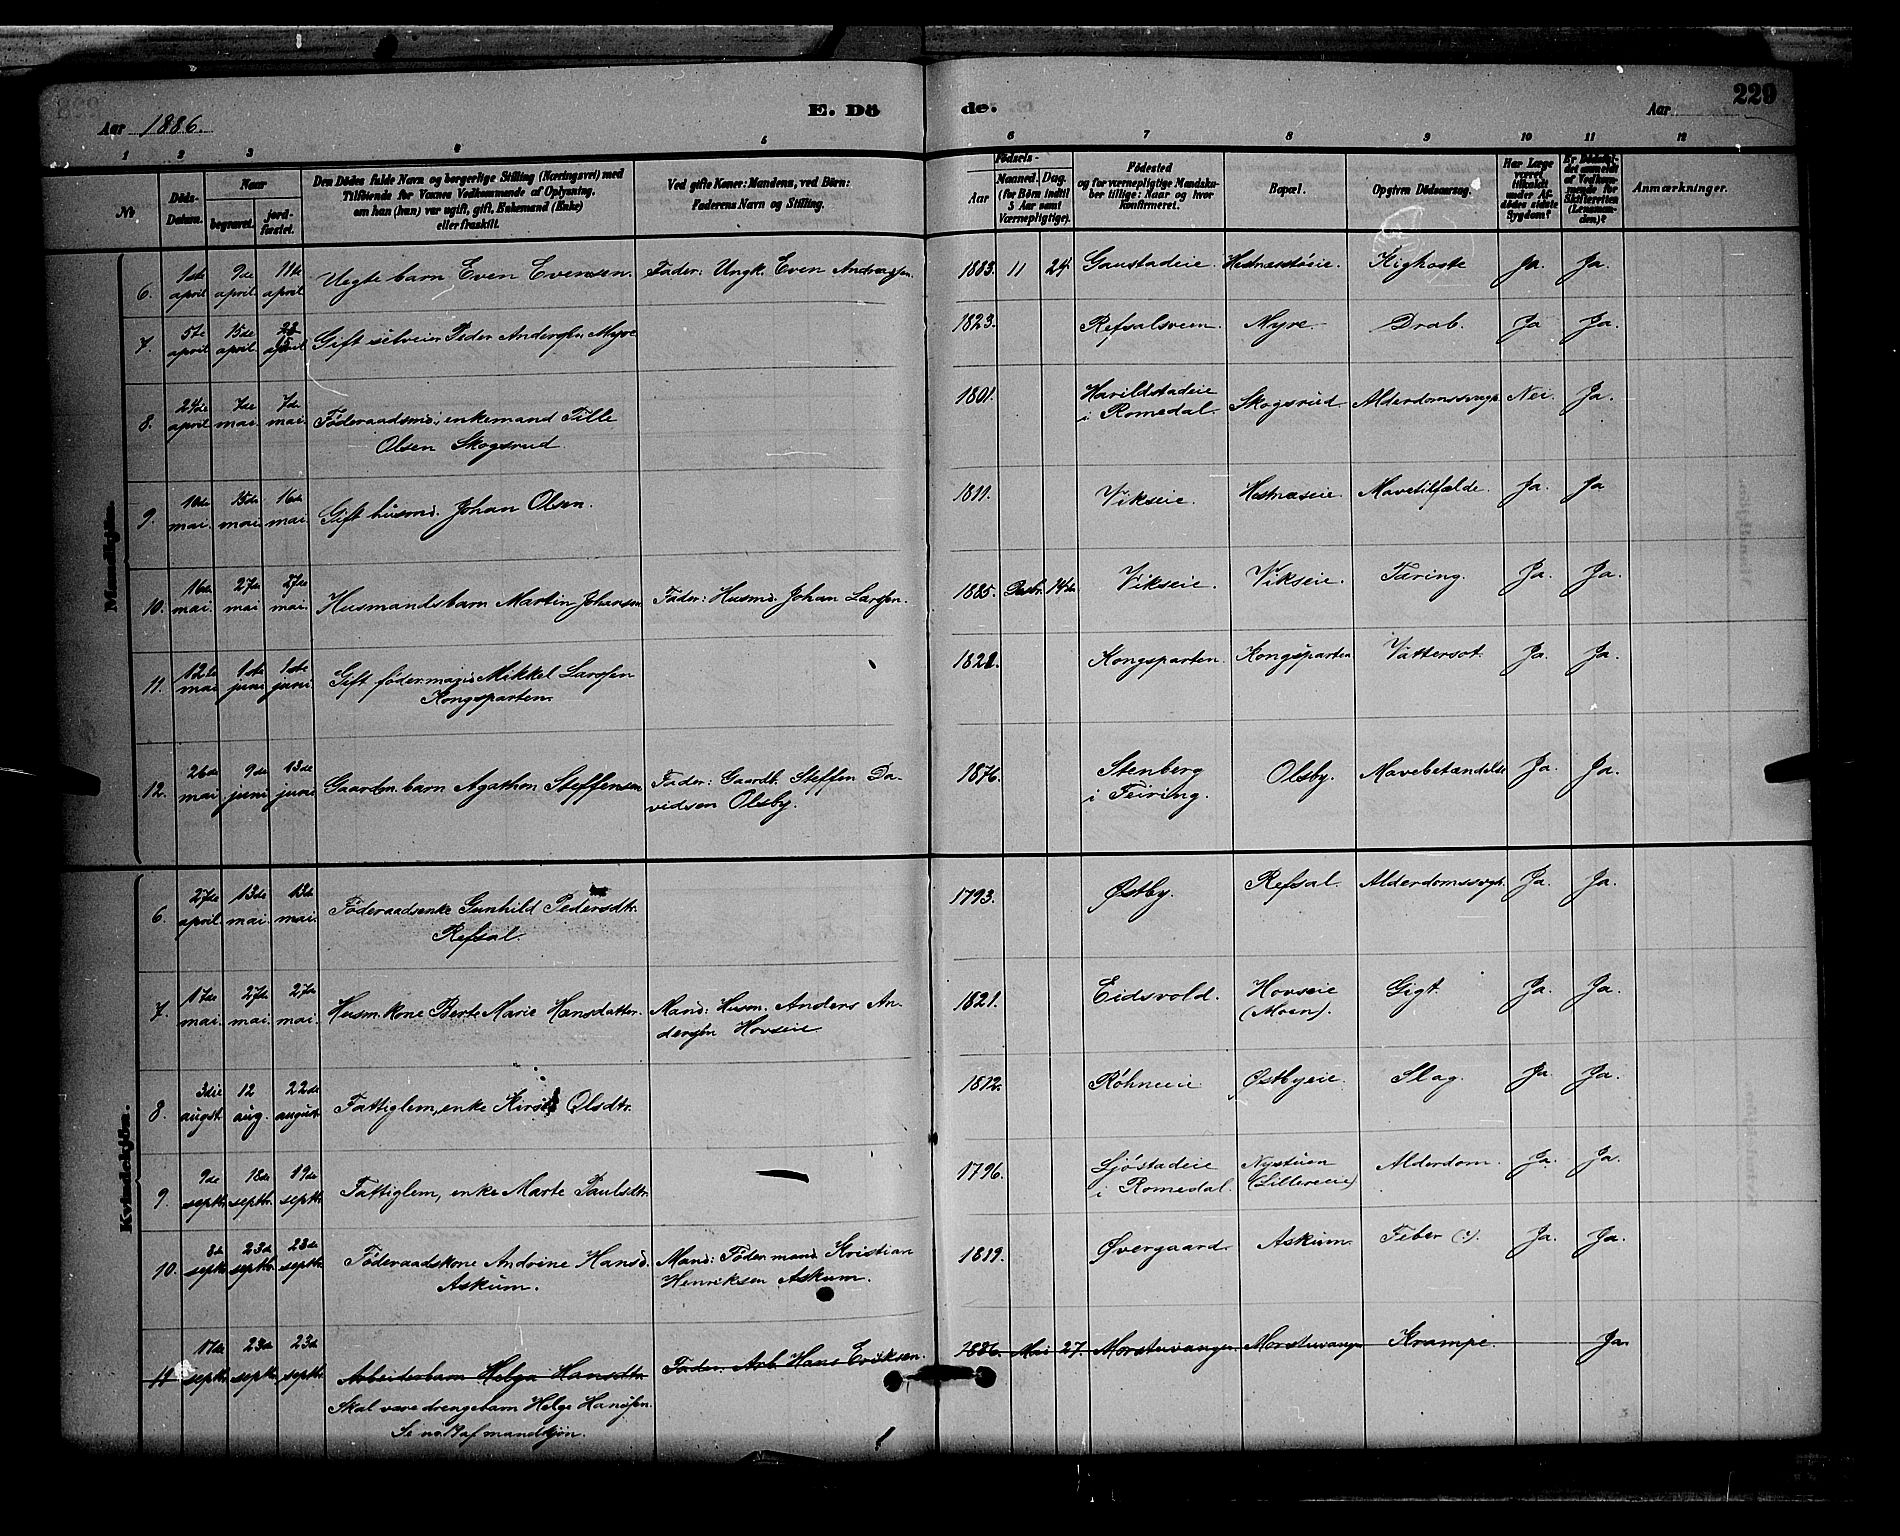 Aar 1886.
E. Dö
de.
Aar
229
1 2 3 4 5 6 7 8 9 10 11 12
No
Döds-Datum.
Naar
begravet.
jord-fæstet.
Den Dödes fulde Navn og borgerlige Stilling (Næringsvei) med
Tilföiende for Voxnes Vedkommende af Oplysning,
om han (hun) var ugift, gift, Enkemand (Enke)
eller fraskilt.
Ved gifte Koner: Mandens, ved Börn:
Faderens Navn og Stilling.
Födsels-
Aar
Maaned. Dag.
(for Börn indtil
5 Aar samt
Værnepligtige).
Födested
og for værnepligtige Mandska-
ber tillige: Naar og hvor
konfirmeret.
Bopæl.
Opgiven Dödsaarsag.
Har Læge
været
tilkaldt
under Af-
dödes sidste
Sygdom?
Er Dödsfal-
det anmeldt
af Vedkom-
mende for
Skifteretten
(Lensman-
den)?
Anmærkninger.
Mandkjön.
6. 1ste april 9de april 11te april Uegte barn Even Evensen. Fader: Ungk. Even Andersen. 1883. 11 24. Gaustadeie. Hestnæstöeie. Kighoste Ja. Ja.
7. 5te april 15de april 23 april Gift selveier Peder Andersen Myre 1823. Refsalsveen. Myre. Drab. Ja Ja.
8. 24de april 7de mai 7de mai. Föderaadsmd., enkemand Tille
Olsen Skogsrud 1801. Harildstadeie
i Romedal. Skogsrud Alderdomssvagh. Nei. Ja.
9. 10de mai. 15de mai. 16de mai. Gift husmd. Johan Olsen. 1811. Vikseie. Hestnæseie. Mavetilfælde. Ja. Ja
10. 16de mai. 27de mai 27de mai. Husmandsbarn Martin Johansen Fader: Husmd. Johan Larsen. 1885. Decbr. 14de Vikseie. Vikseie. Tæring. Ja. Ja.
11. 12te mai 1ste juni 1ste juni. Gift föder.mand Mikkel Larsen
Kongsparten. 1822. Kongsparten. Kongsparten Vattersot. Ja. Ja.
12. 26de mai 9de juni 13de juni Gaardm. barn Agathon Steffensen Fader: Gaardb. Steffen Da-
vidsen Olsby. 1876. Stenberg
i Feiring. Olsby. Mavebetændelse Ja. Ja.
Kvindekjön.
6. 27de april 13de mai. 13de mai. Föderaadsenke Gunhild Pedersdtr.
Refsal. 1793. Østby. Refsal. Alderdomssvagh. Ja. Ja.
7. 17de mai. 27de mai. 27de mai. Husm.kone Berte Marie Hansdatter. Mand: Husm. Anders An-
dersen Hovseie 1821. Eidsvold. Hovseie
(Moen). Gigt. Ja. Ja.
8. 3die augst. 12 aug. 22de august Fattiglem, enke Kirsti Olsdtr. 1812. Röhneeie Østbyeie. Slag. Ja. Ja.
9. 9de septbr. 18de septbr. 19de septbr. Fattiglem, enke Marte Paulsdtr. 1796. Ljöstadeie
i Romedal. Nystuen
(Lillereeie) Alderdom. Ja. Ja.
10. 8de septbr. 23de septbr. 23de septbr. Föderaadskone Andrine Hansd.
Askum. Mand: Föder.mand Kristian
Henriksen Askum. 1819. Øvergaard. Askum. Feber (?). Ja. Ja.
11 17de septbr. 23de septbr. 23de septbr. Arbeiderbarn Helga Hansdtr. Fader: Arb. Hans Eriksen. 1886. Mai 27. Morstuvangen. Morstuvangen Krampe. Ja.
Skal være drengebarn Helge Hansen.
Se no. 17 af mandkjön.